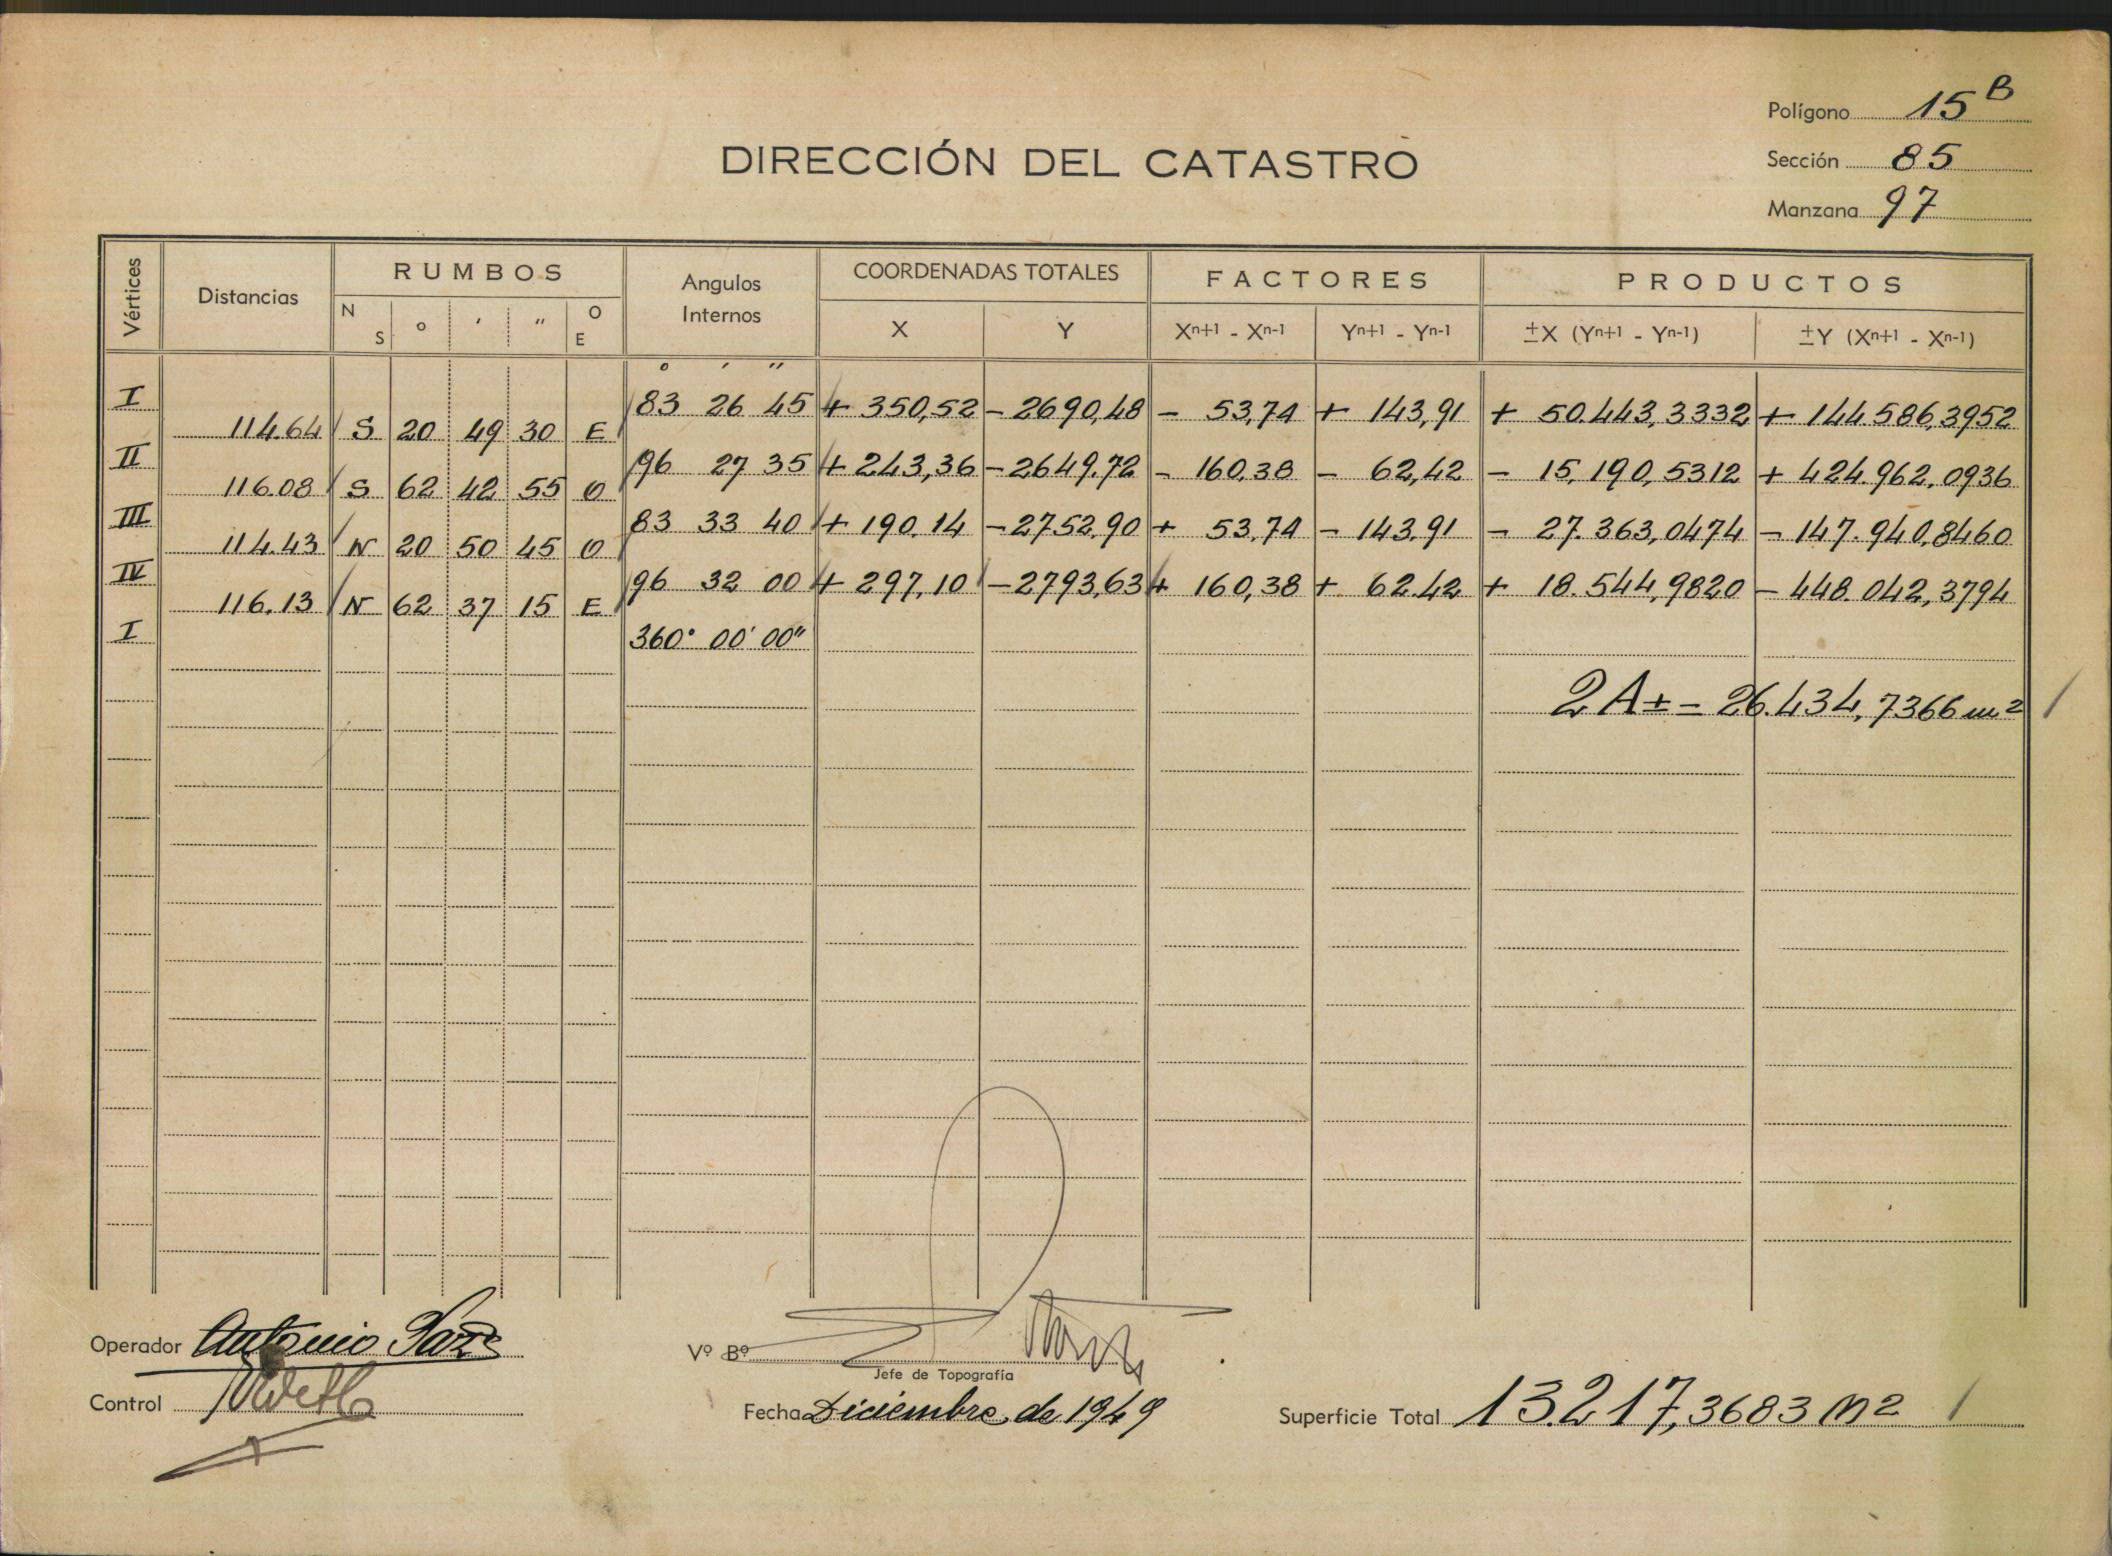 Polígono 15 B
Sección 85
Manzana 97
DIRECCIÓN DEL CATASTRO
Vértices Distancias RUMBOS Angulos Internos COORDENADAS TOTALES FACTORES PRODUCTOS
N S ° ′ ″ O E X Y Xn+1 - Xn-1 Yn+1 - Yn-1 ±X (Yn+1 - Yn-1) ±Y (Xn+1 - Xn-1)
° ′ ″
I 83 26 45 + 350,52 - 2690,48 - 53,74 + 143,91 + 50.443,3332 + 144.586,3952
114.64 S 20 49 30 E
II 96 27 35 + 243,36 - 2649,72 - 160,38 - 62,42 - 15.190,5312 + 424.962,0936
116.08 S 62 42 55 O
III 83 33 40 + 190.14 - 2752,90 + 53,74 - 143,91 - 27.363,0474 - 147.940,8460
114.43 N 20 50 45 O
IV 96 32 00 + 297,10 - 2793,63 + 160,38 + 62.42 + 18.544,9820 - 448.042,3794
116.13 N 62 37 15 E
I 360° 00′ 00″
2A± = 26.434,7366 m2
Operador Antonio
Control
Vº Bº
Jefe de Topografía
Fecha Diciembre de 1949
Superficie Total 13.217,3683 m2